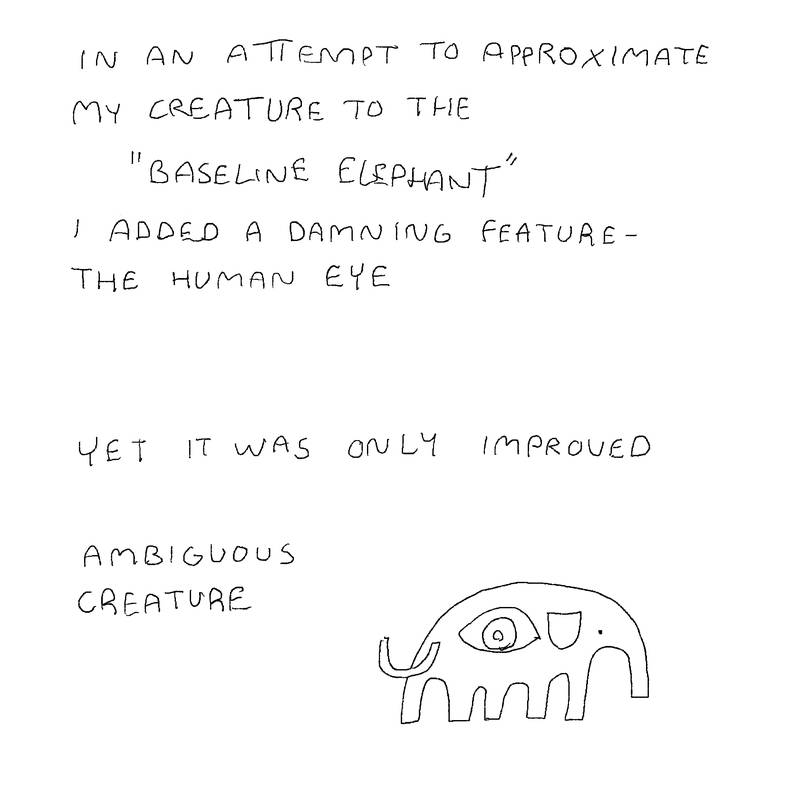 IN AN ATTEMPT TO APPROXIMATE
MY CREATURE TO THE
"BASELINE ELEPHANT"
I ADDED A DAMNING FEATURE-
THE HUMAN EYE
YET IT WAS ONLY IMPROVED
AMBIGUOUS
CREATURE